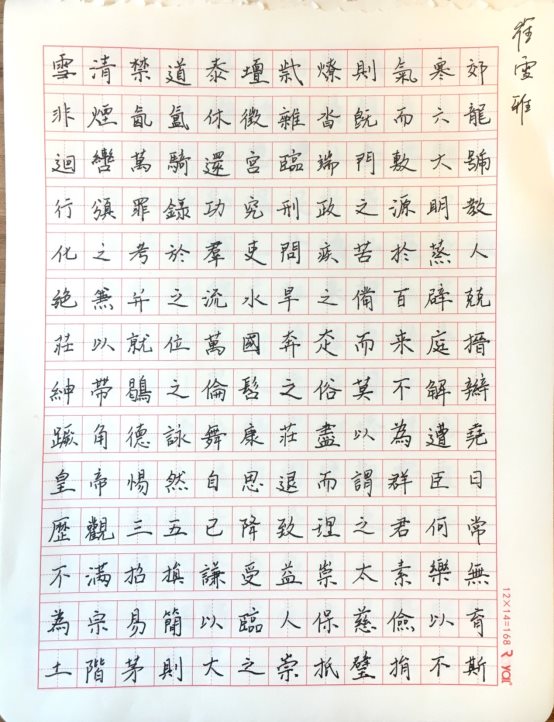 雪清禁道泰壇紫燎則氣寒郊
非煙氤氳休徵雜沓既而六龍
迴轡萬騎還宮臨端門敷大號
行頒罪錄功究刑政之源明教
化之考於羣吏問疾苦於蒸人
絕兼并之流水旱之備百辟兢
莊以就位萬國奔走而来庭搢
紳帶鶡之倫髻之俗莫不解辮
蹶角德詠舞康莊盡以為遭堯
皇帝惕然自思退而謂群臣曰
歷觀三五已降致理之君何常
不滿招損謙受益崇太素樂無
為宗易簡以臨人保慈儉以育
土階茅則大之崇抵璧捐不斯
12×14=168